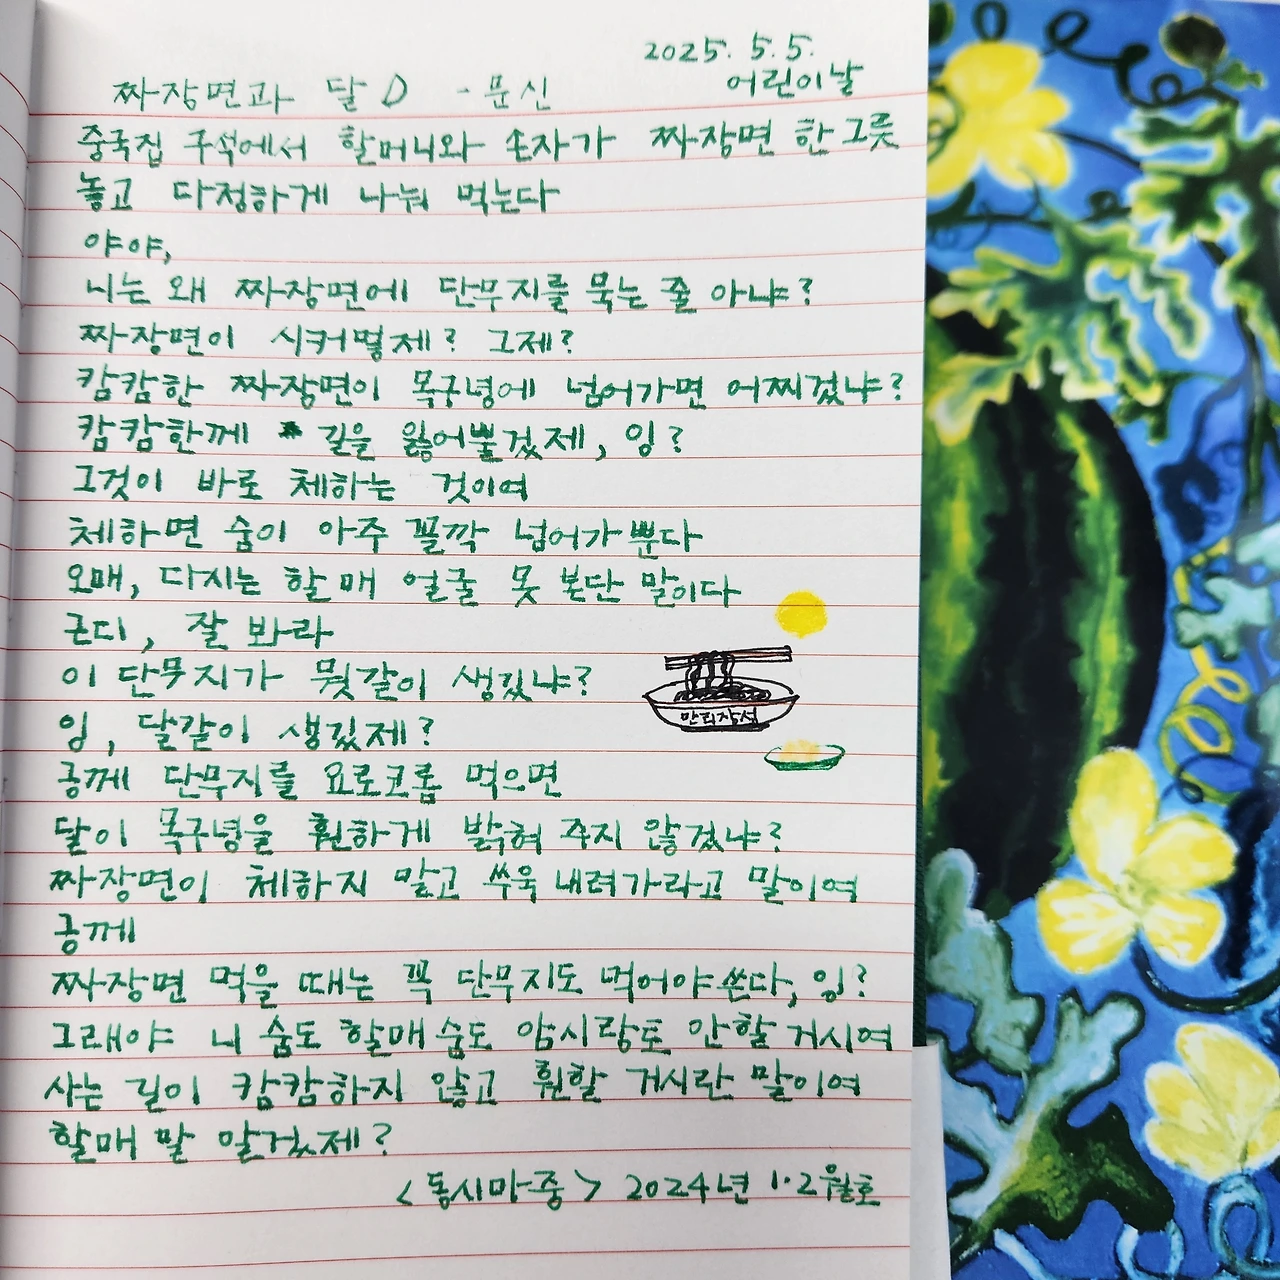 2025. 5. 5.
어린이날
짜장면과 달 - 문신
중국집 구석에서 할머니와 손자가 짜장면 한그릇
놓고 다정하게 나눠 먹는다
야야,
니는 왜 짜장면에 단무지를 묵는 줄 아냐?
짜장면이 시커멓제? 그제?
캄캄한 짜장면이 목구녕에 넘어가면 어찌겄냐?
캄캄한께 길을 잃어뿔겄제, 잉?
그것이 바로 체하는 것이여
체하면 숨이 아주 꼴깍 넘어가뿐다
오매, 다시는 할매 얼굴 못 본단 말이다
근디, 잘 봐라
이 단무지가 뭣같이 생깄냐?
잉, 달같이 생깄제?
긍께 단무지를 요로코롬 먹으면
달이 목구녕을 훤하게 밝혀 주지 않겄냐?
짜장면이 체하지 말고 쑤욱 내려가라고 말이여
긍께
짜장면 먹을 때는 꼭 단무지도 먹어야 쓴다, 잉?
그래야 니 숨도 할매 숨도 암시랑토 안할 거시여
사는 길이 캄캄하지 않고 훤할 거시란 말이여
할매 말 알겄제?
<동시마중> 2024년 1·2월호
만리장성